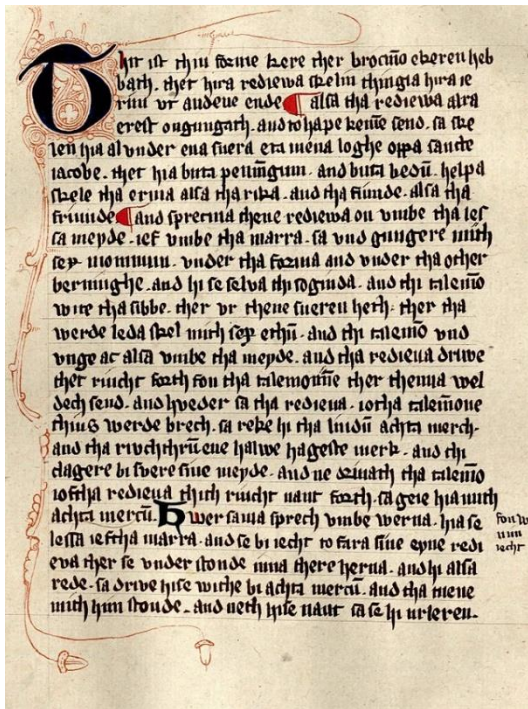 Thit ist thiu forme kere ther brocmēn ekeren heb
bath. thet hira rediewa skelin thingia hira ie
riim vt and eue ende ¶ alsa tha rediewa alra
erest ongungath. and to hape kemē send. sa ske
len hia al vnder ena suera eta mena loghe oppa sancte
iacobe. thet hia buta penningum. and buta bedū. helpa
skele tha erma alsa tha rika. and tha fiunde. alsa tha
friunde ¶ and sprecma thene rediewa on vmbe tha les
sa meyde. ief vmbe tha marra. sa vnd gungere mith
sex monnum. vnder tha forma and vnder tha other
bernighe. and hi se selva thi sogenda. and thi talemō
wite tha sibbe. ther vr thene sueren heth. ther tha
werde leda skel mith sex ethū. and thi talemō vnd
vnge ac alsa vmbe tha meyde. and tha redieua driwe
thet riucht forth fon tha talemonne ther thenna wel
dech send. and hveder sa tha redieua. ioftha talemōne
thius werde brech. sa reke hi tha liudū achta merch.
and tha riuchthrū ene halwe hageste merk. and thi
dagere bi fvere sine meyde. and ne driuath tha talemō
ioftha redieua thith riucht naut forth. sa geie hia mith
achta mercū. Hwersama sprech vmbe werna. hia se
lessa ieftha marra. and se bi iecht to fara sine eyne redi
eva ther se vnder stonde inna there herna. and hi alsa
rede. sa driwe hise withe bi achta mercū. and tha mene
mith him stonde. and neth hise naut sa se hi urleren.
fon w
iecht